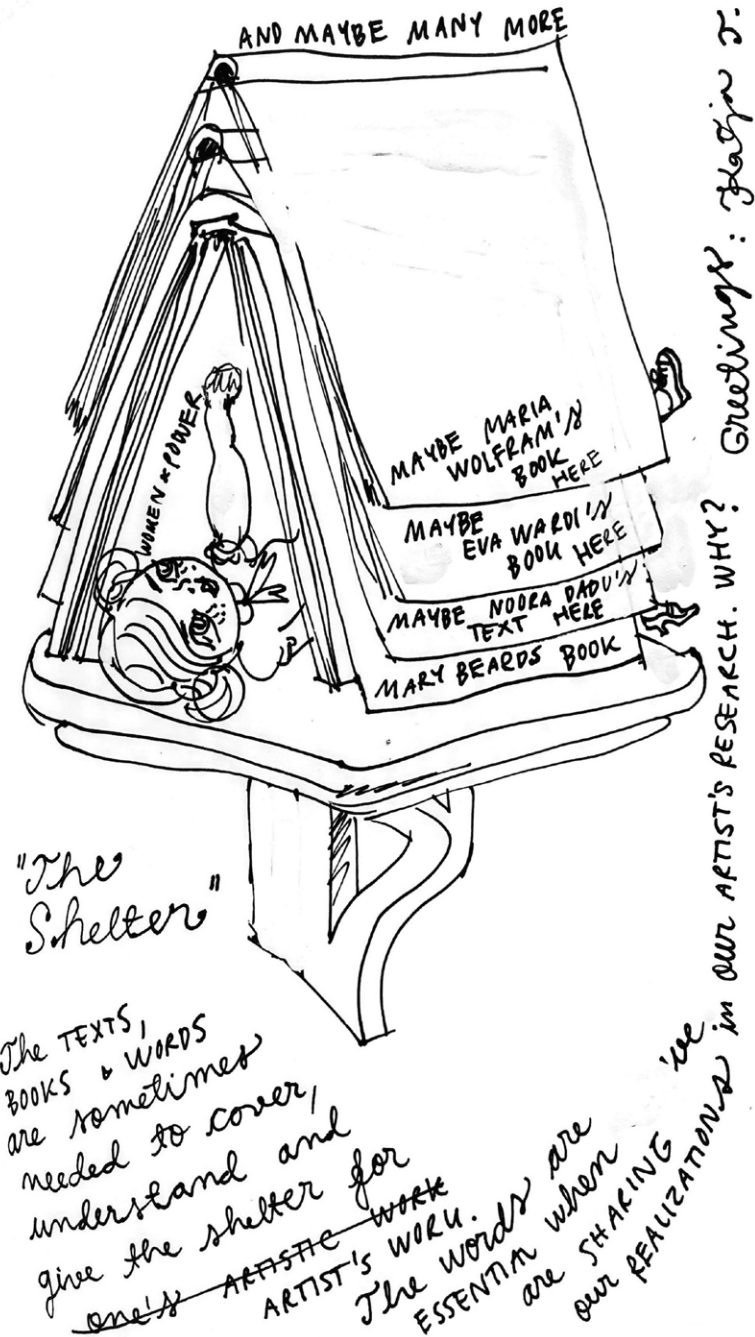 AND MAYBE MANY MORE
WOMEN & POWER
MAYBE MARIA
WOLFRAM'S
BOOK
HERE
MAYBE
EVA WARDI'S
BOOK HERE
MAYBE NOORA DADU'S
TEXT HERE
MARY BEARDS BOOK
"The
Shelter"
The TEXTS,
BOOKS & WORDS
are sometimes
needed to cover,
understand and
give the shelter for
one's ARTISTIC WORK
ARTIST'S WORK.
The words are
ESSENTIAL when 've
are SHARING
our REALIZATIONS in our ARTIST'S RESEARCH. WHY? Greetings: Katja J.